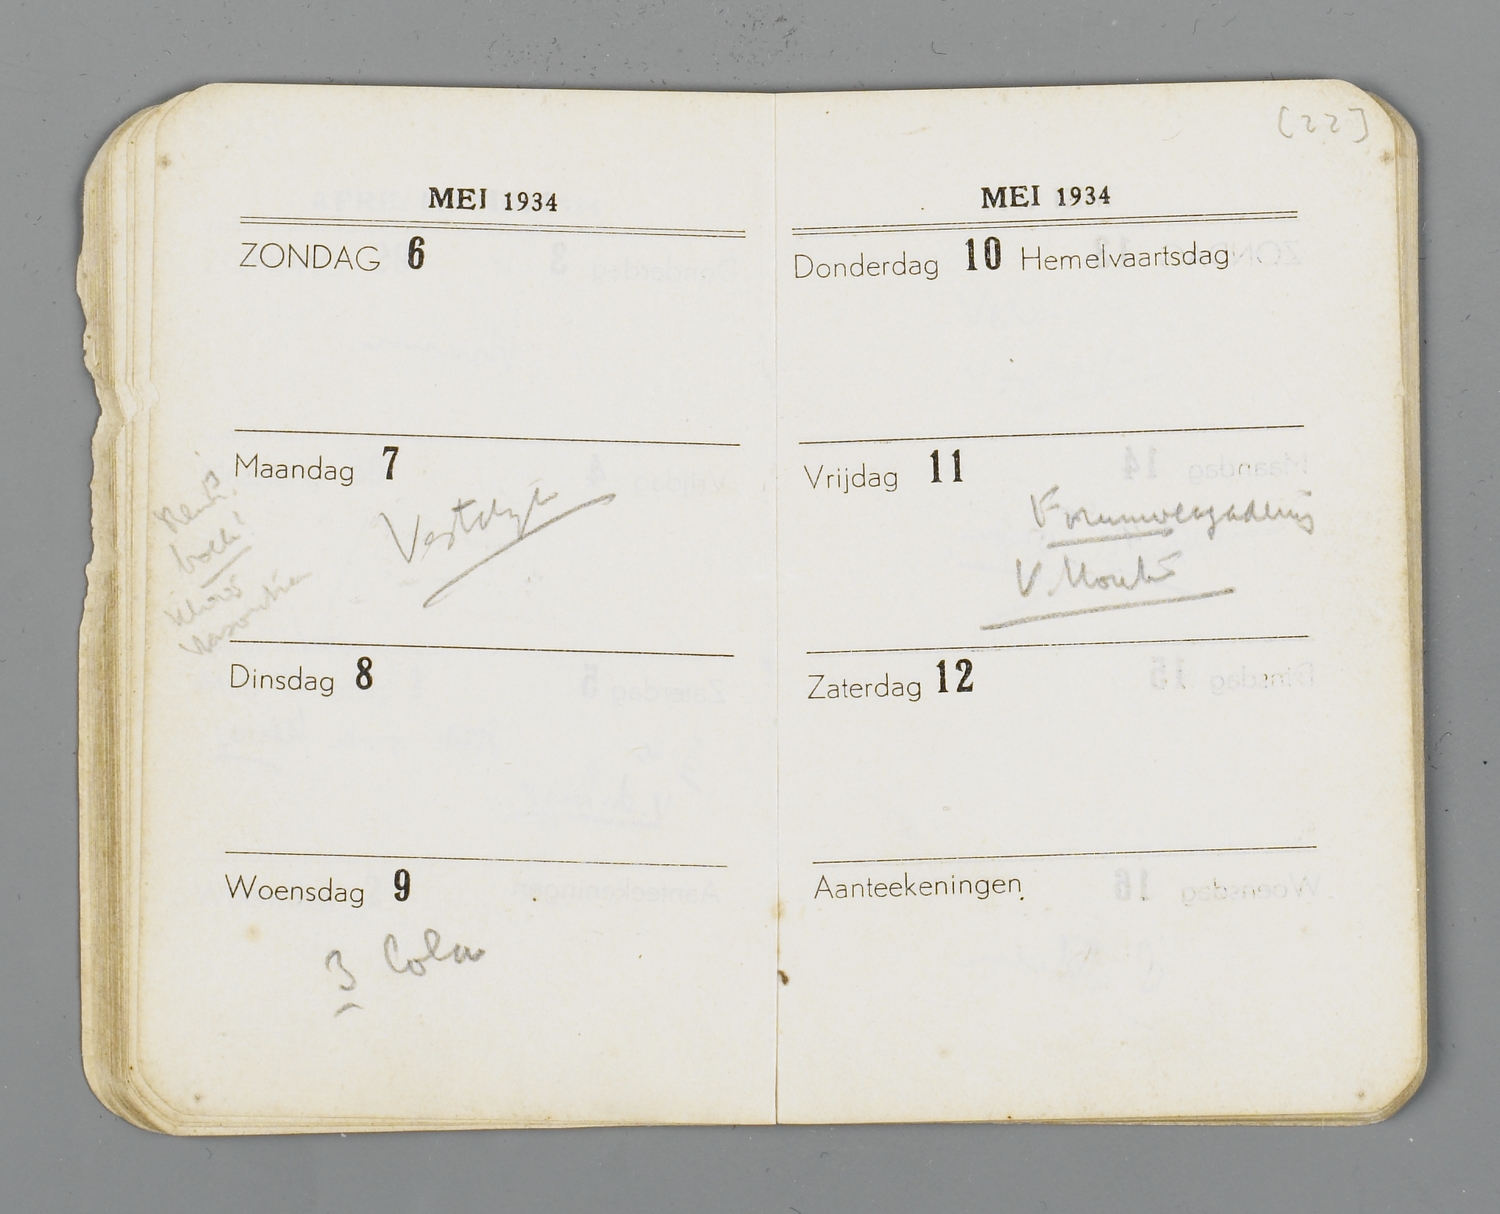 MEI 1934
ZONDAG 6
Maandag 7
Vestdijk
boek!
Dinsdag 8
Woensdag 9
3 Cola
[22]
MEI 1934
Donderdag 10 Hemelvaartsdag
Vrijdag 11
Forumvergadering
V
Zaterdag 12
Aanteekeningen